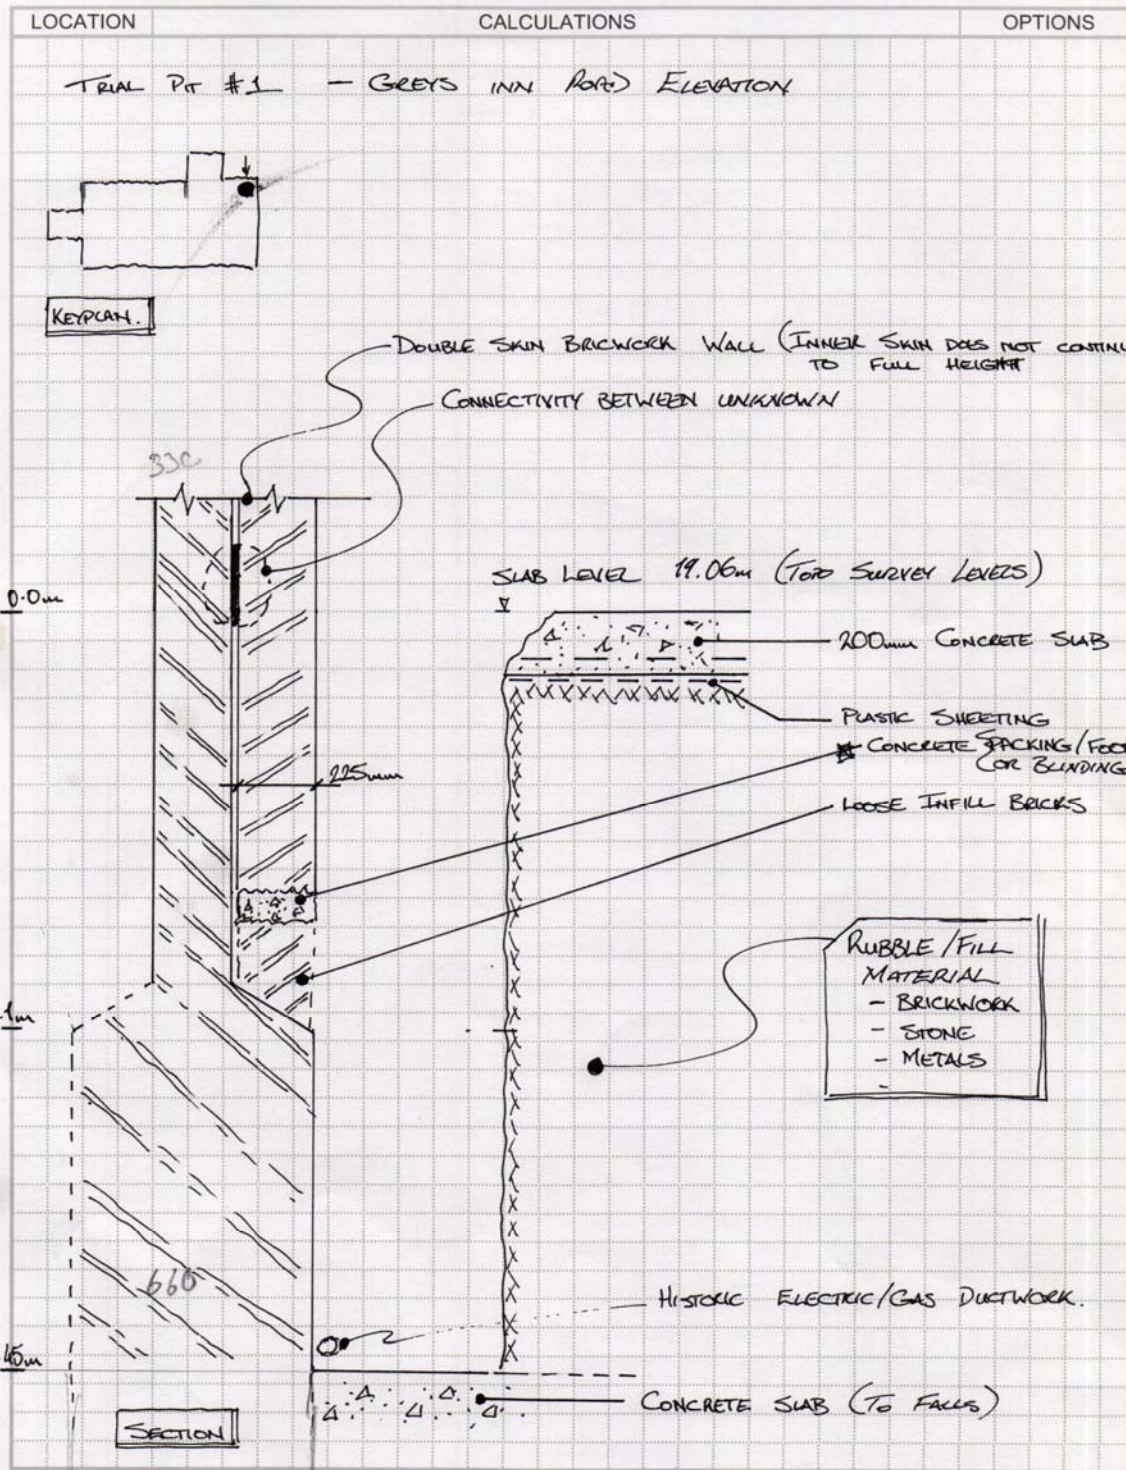 LOCATION
CALCULATIONS
OPTIONS
TRIAL PIT #1 — GREYS INN ROAD ELEVATION
KEYPLAN.
DOUBLE SKIN BRICWORK WALL (INNER SKIN DOES NOT CONTINU
TO FULL HEIGHT
CONNECTIVITY BETWEEN UNKNOWN
330
0.0m
SLAB LEVEL 19.06m (TOPO SURVEY LEVELS)
200mm CONCRETE SLAB
PLASTIC SHEETING
CONCRETE PACKING/FOO
(OR BLINDING
225mm
LOOSE INFILL BRICKS
RUBBLE/FILL
MATERIAL
- BRICKWORK
- STONE
- METALS
-
1m
660
HISTORIC ELECTRIC/GAS DUCTWORK.
45m
CONCRETE SLAB (TO FALLS)
SECTION